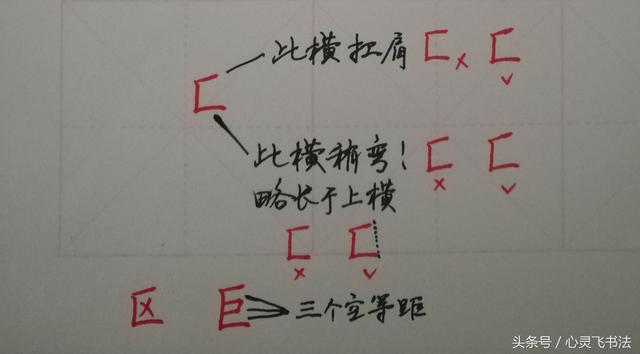 此横扛肩 匚 × 匚 ✓
匚
此横稍弯！ 匚 × 匚 ✓
略长于上横
匚 × 匚 ✓
区 巨 三个空等距
头条号 / 心灵飞书法